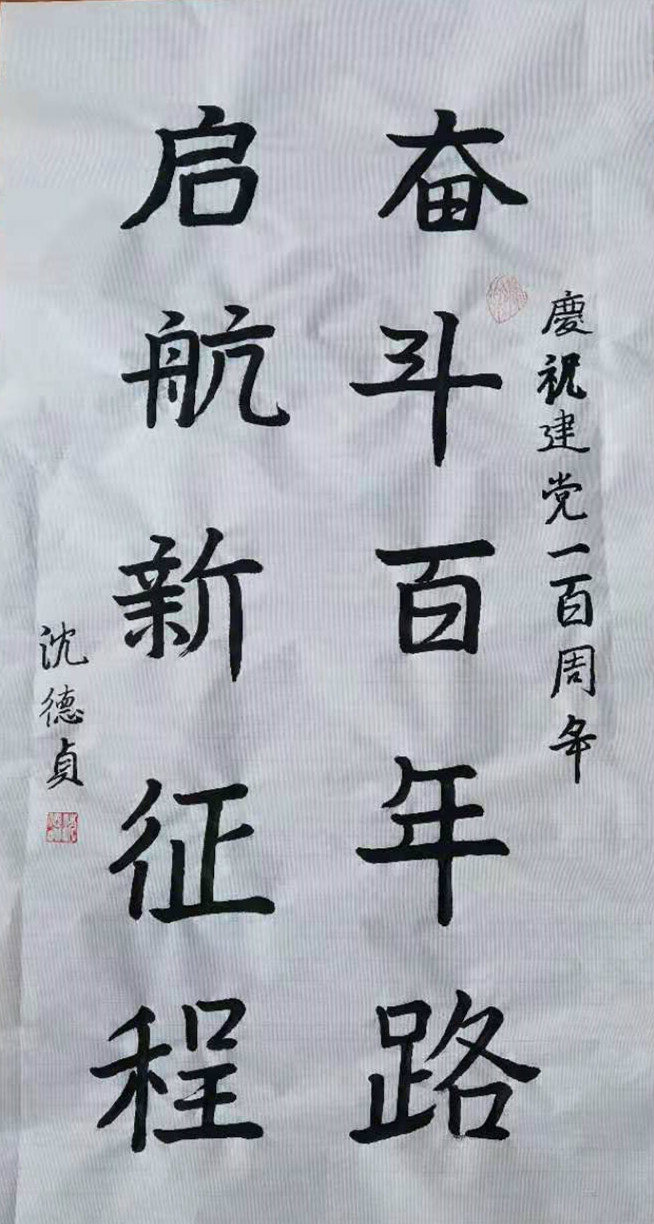 慶祝建党一百周年
奋斗百年路
启航新征程
沈德贞